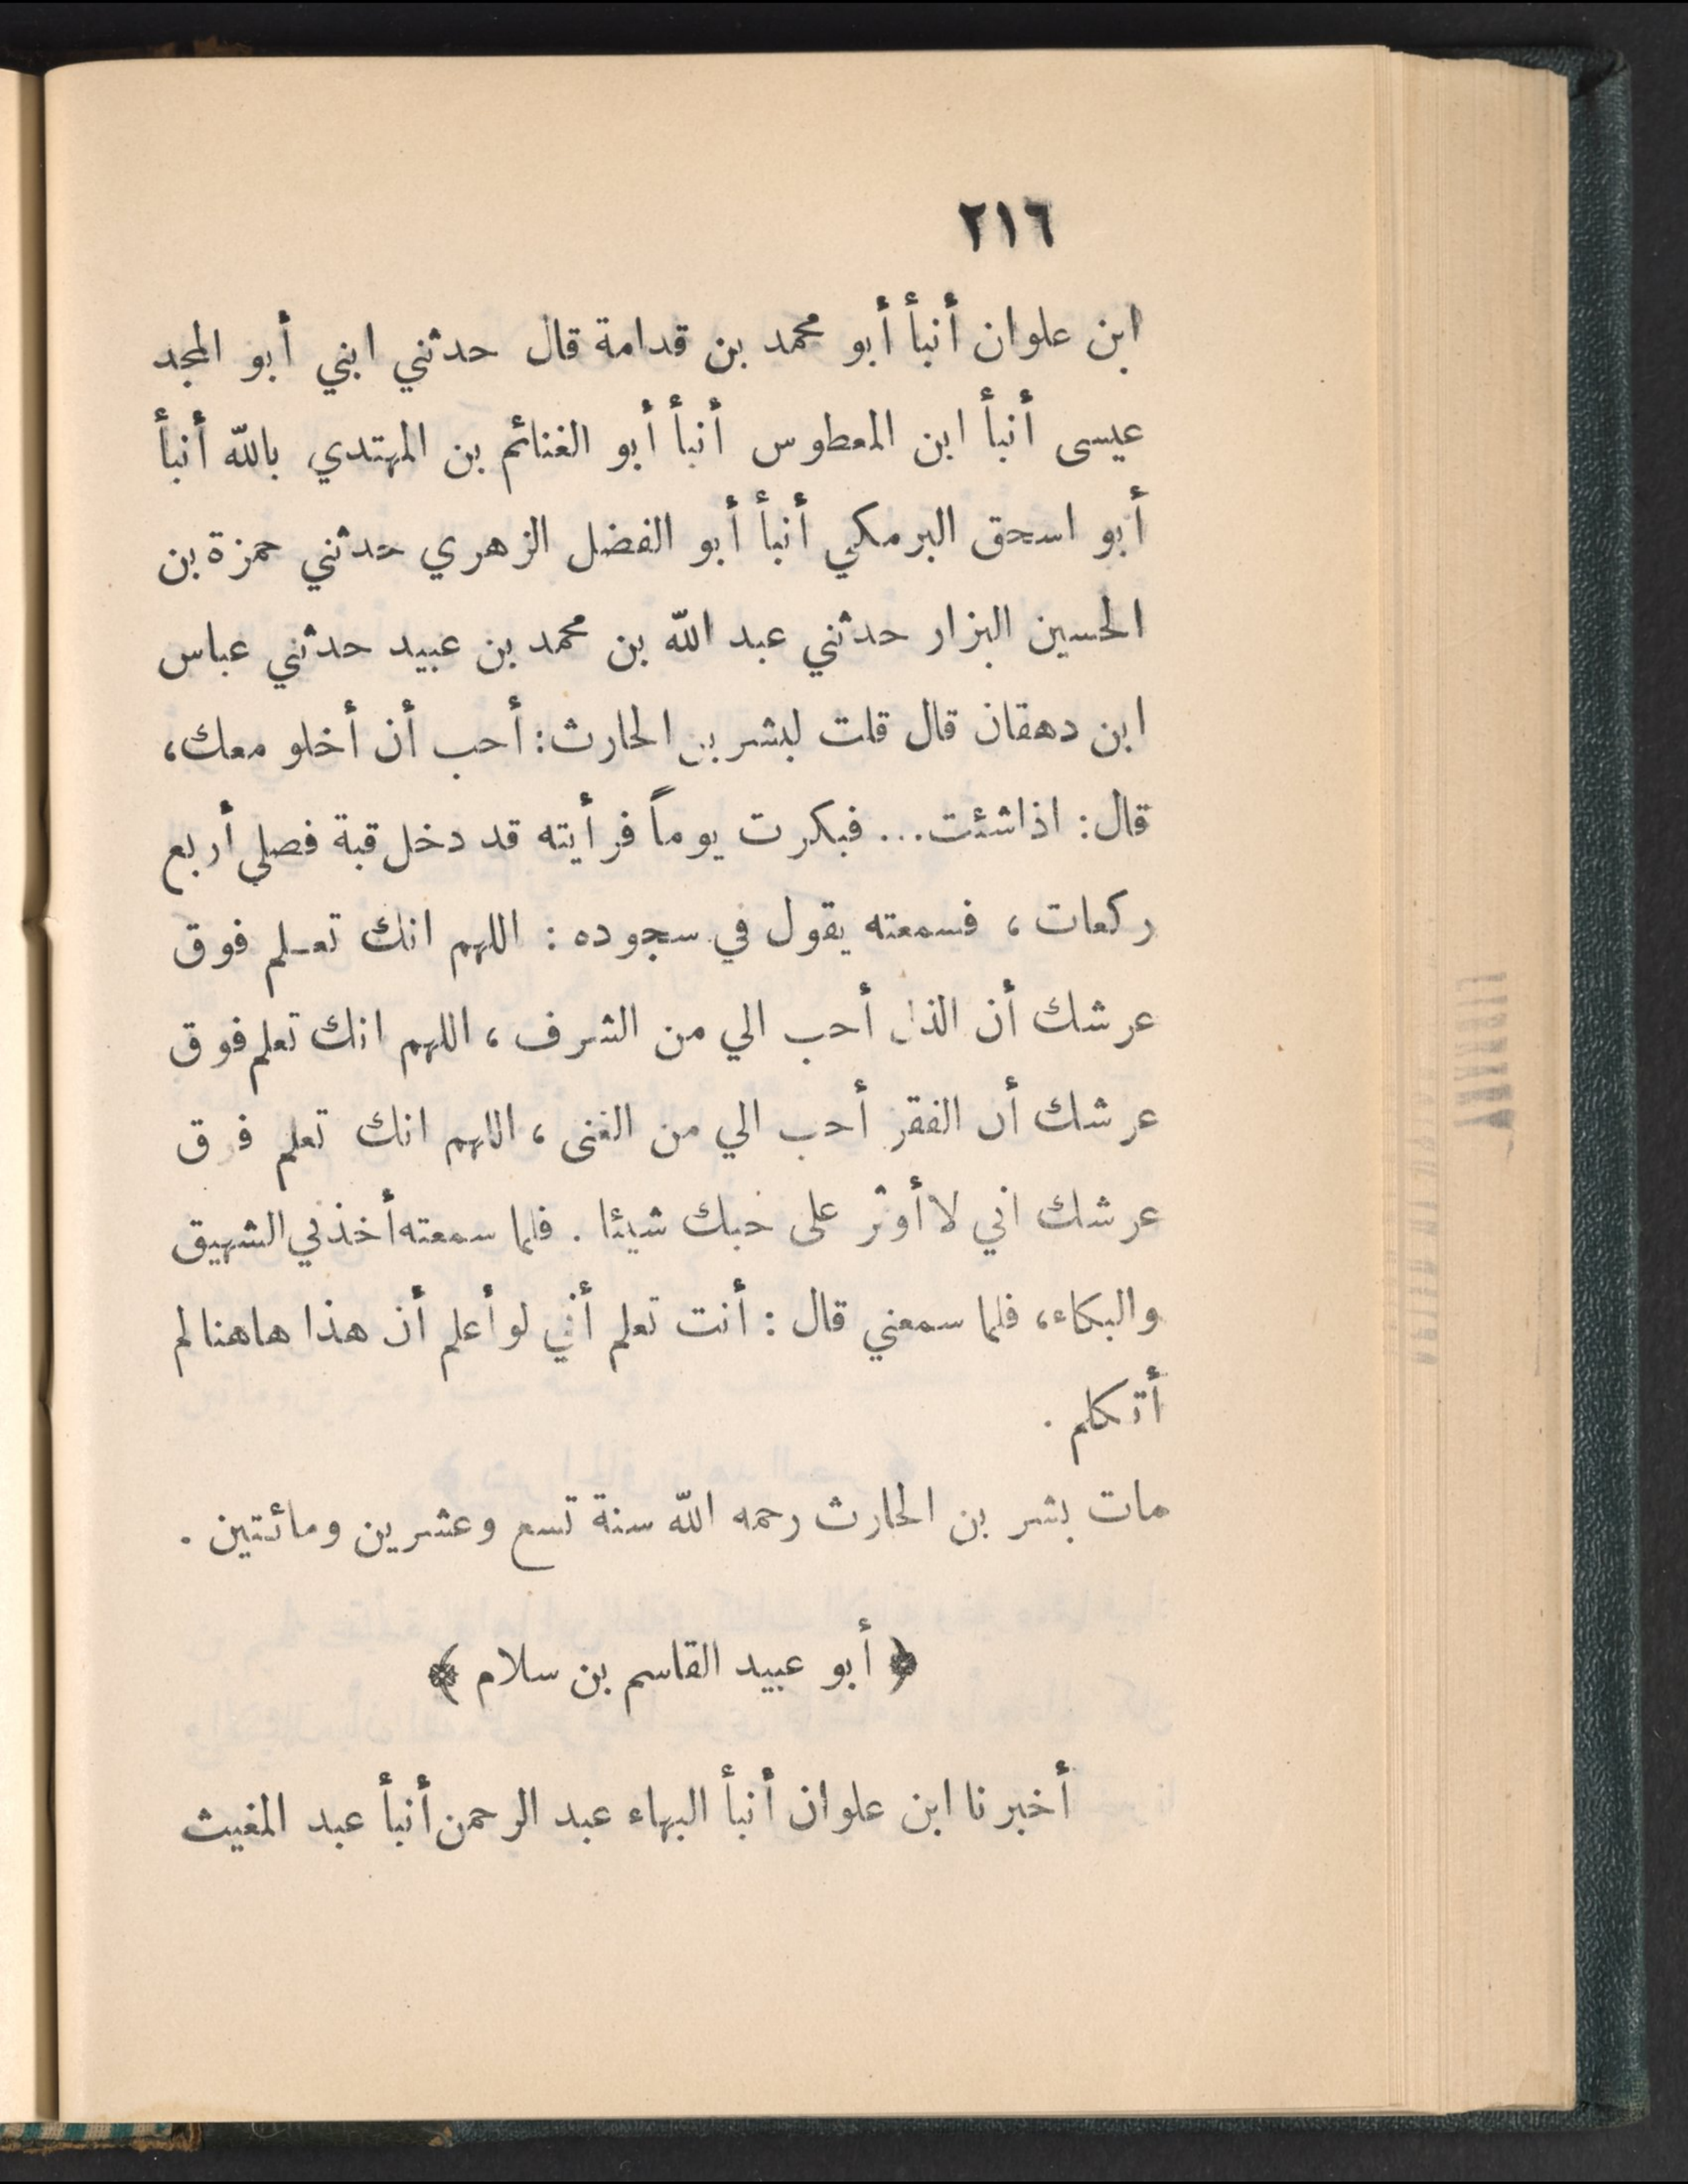 ٢١٦
ابن علوان أنبأ أبو محمد بن قدامة قال حدثني ابني أبو المجد
عيسى أنبأ ابن المعطوس أنبأ أبو الغنائم بن المهتدي بالله أنبأ
أبو اسحق البرمكي أنبأ أبو الفضل الزهري حدثني حمزة بن
الحسين البزار حدثني عبد الله بن محمد بن عبيد حدثني عباس
ابن دهقان قال قلت لبشر بن الحارث: أحب أن أخلو معك،
قال: اذا شئت... فبكرت يوماً فرأيته قد دخل قبة فصلى أربع
ركعات، فسمعته يقول في سجوده: اللهم انك تعلم فوق
عرشك أن الذل أحب الي من الشرف، اللهم انك تعلم فوق
عرشك أن الفقر أحب الي من الغنى، اللهم انك تعلم فوق
عرشك اني لا أوثر على حبك شيئا. فلما سمعته أخذني الشهيق
والبكاء، فلما سمعني قال: أنت تعلم أني لو أعلم أن هذا هاهنا لم
أتكلم.
مات بشر بن الحارث رحمه الله سنة تسع وعشرين ومائتين.
﴿ أبو عبيد القاسم بن سلام ﴾
أخبرنا ابن علوان أنبأ البهاء عبد الرحمن أنبأ عبد المغيث